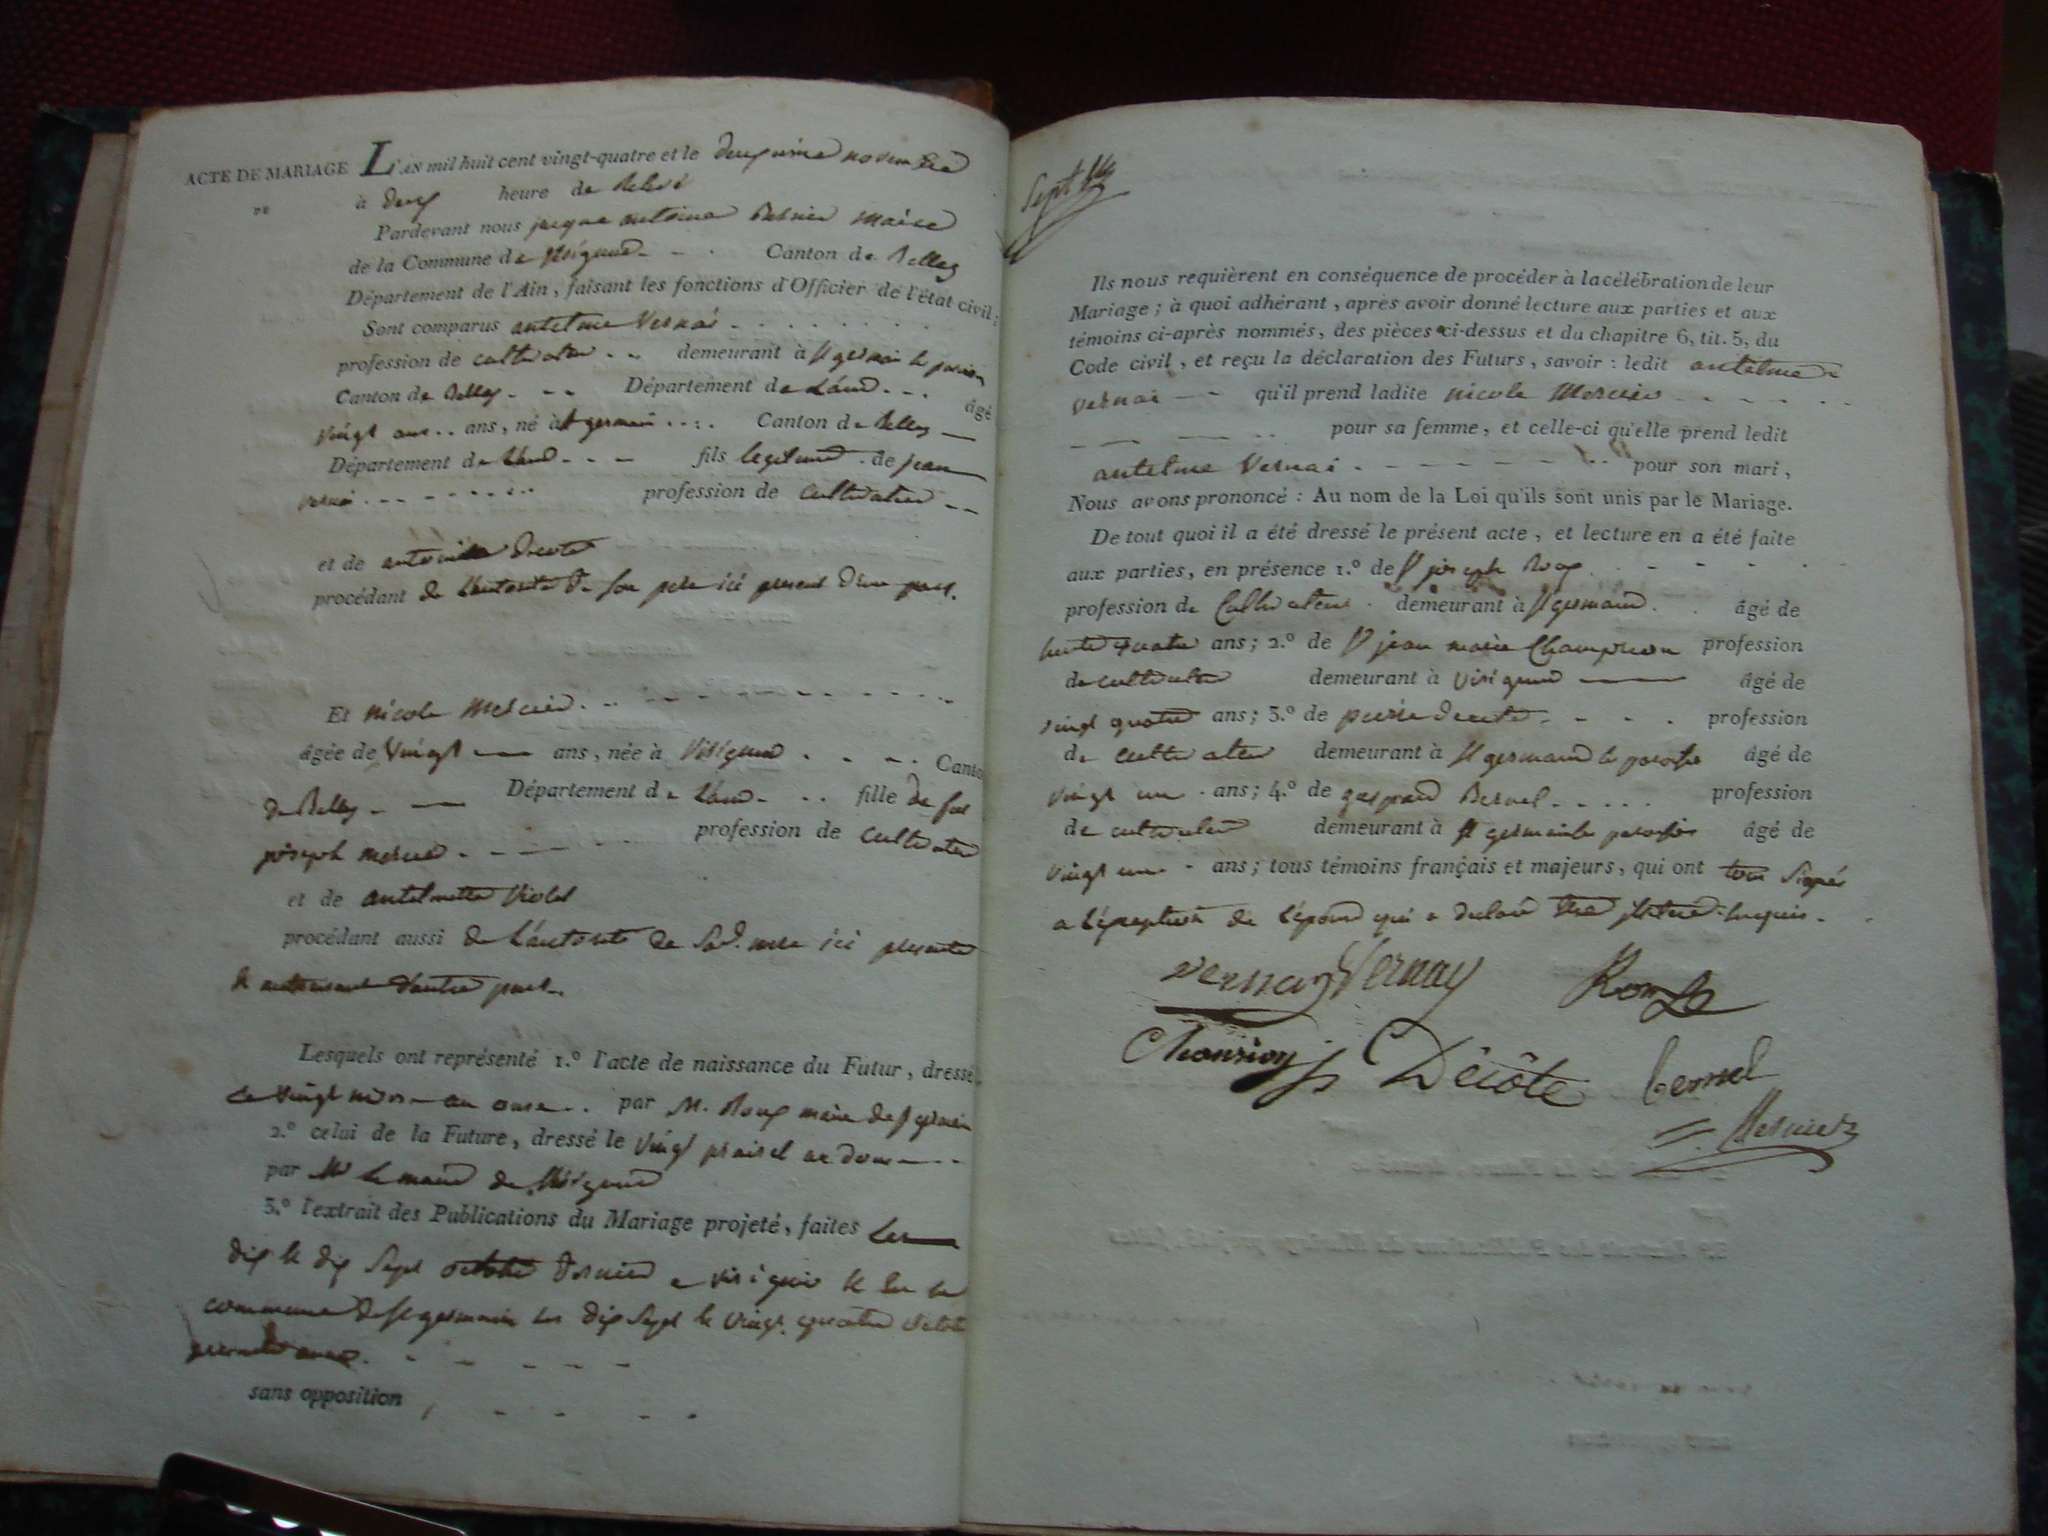 ACTE DE MARIAGE L'AN mil huit cent vingt-quatre et le deuxieme novembre
DE
à deux heure de
Pardevant nous jaque antoine maire
de la Commune de Virignin Canton de Belley
Département de l'Ain, faisant les fonctions d'Officier de l'état civil:
Sont comparus antelme Vernai
profession de cultivateur demeurant à St germain le
Canton de Belley Département de Lain âgé
vingt ans, né à St germain Canton de Belley
Département de Lain fils legitime de jean
vernai profession de cultivateur
et de antoinette decote
procédant de Lautorité de son pere ici present d'une part.
Et nicole Mercier
âgée de vingt ans, née à Virignin Canto
de Belley Département de Lain fille de feu
joseph mercier profession de cultivateur
et de antelmette Violet
procédant aussi de Lautorité de sad. mere ici presente
et autorisant d'autre part
Lesquels ont représenté 1.º l'acte de naissance du Futur, dressé
le vingt an onze par M. Roux maire de St germain
2.º celui de la Future, dressé le vingt prairial an douze
par Mr Le maire de Virignin
3.º l'extrait des Publications du Mariage projeté, faites Les
dix et dix sept octobre dernier a virignin et en la
commune de St germain les dix sept et vingt quatre octobre
sans opposition
Sept
Ils nous requièrent en conséquence de procéder à la célébration de leur
Mariage; à quoi adhérant, après avoir donné lecture aux parties et aux
témoins ci-après nommés, des pièces ci-dessus et du chapitre 6, tit. 5, du
Code civil, et reçu la déclaration des Futurs, savoir: ledit antelme
vernai qu'il prend ladite nicole Mercier
pour sa femme, et celle-ci qu'elle prend ledit
antelme Vernai pour son mari,
Nous avons prononcé: Au nom de la Loi qu'ils sont unis par le Mariage.
De tout quoi il a été dressé le présent acte, et lecture en a été faite
aux parties, en présence 1.º de Sr joseph Roux
profession de Cultivateur demeurant à St germain âgé de
trente quatre ans; 2.º de Sr jean marie Champion profession
de cultivateur demeurant à virignin âgé de
vingt quatre ans; 3.º de pierre decote profession
de cultivateur demeurant à St germain le âgé de
vingt un ans; 4.º de gaspard Bernel profession
de cultivateur demeurant à St germain le âgé de
vingt un ans; tous témoins français et majeurs, qui ont tous signés
a Léxeption de Lépouse qui a declaré etre illitérée requis.
vernay Vernay Roux
Décôte bernel